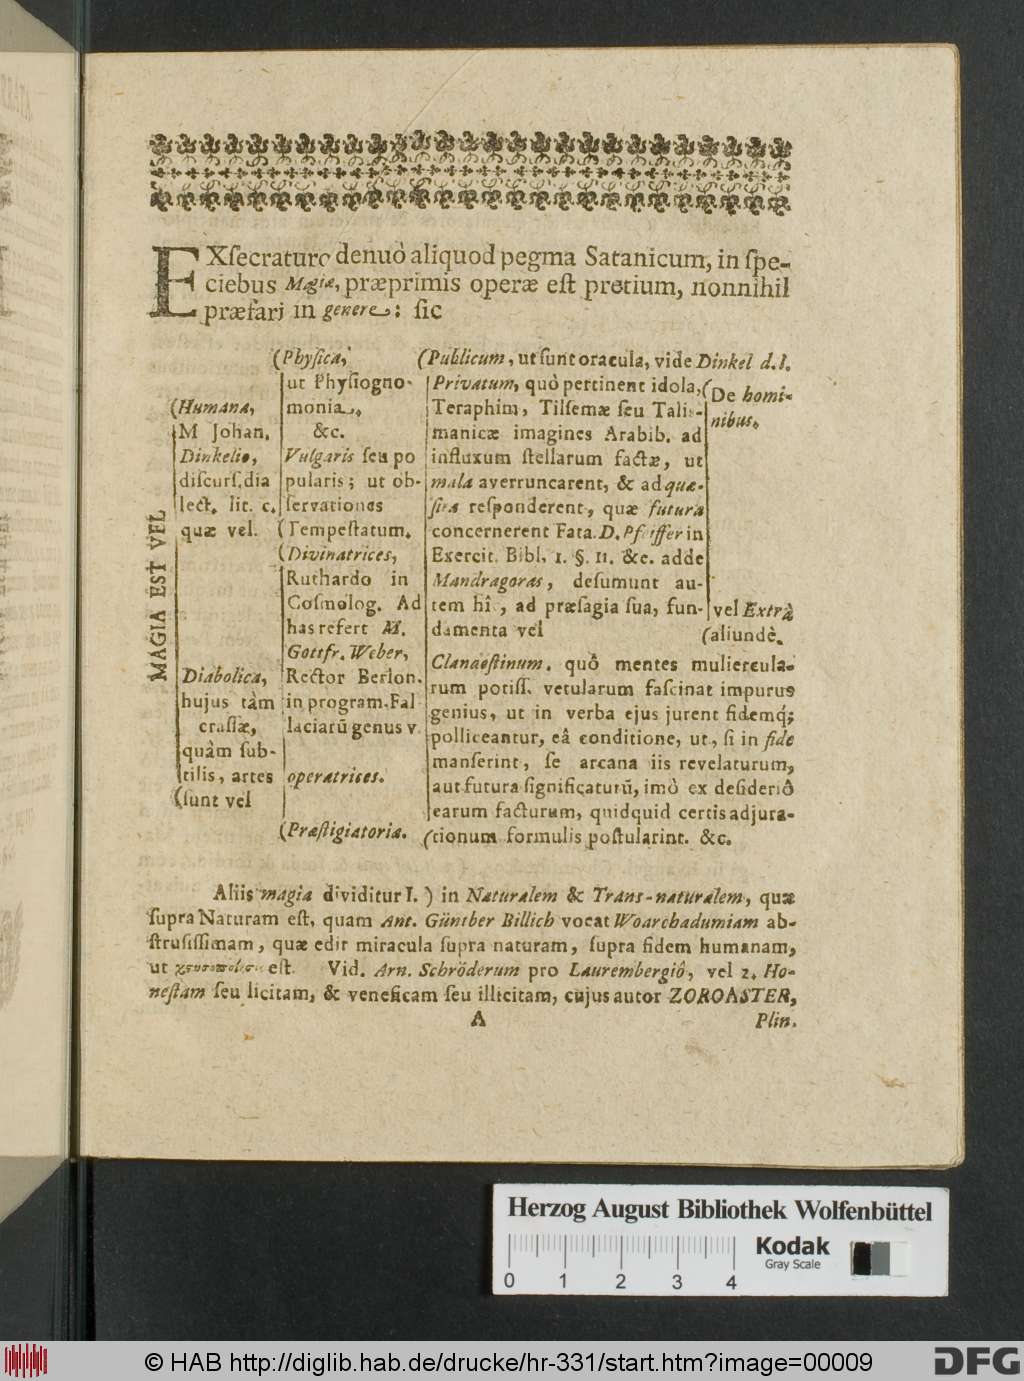 EXſecraturo denuò aliquod pegma Satanicum, in ſpe-
ciebus Magiæ, præprimis operæ eſt pretium, nonnihil
præfari in genere: ſic
MAGIA EST VEL
(Humana,
M Johan.
Dinkelio,
diſcurſ. dia
lect. lit. c.
quæ vel.
Diabolica,
hujus tàm
craſſæ,
quàm ſub-
tilis, artes
(ſunt vel
(Phyſica,
ut Phyſiogno-
monia,
&c.
Vulgaris ſeu po
pularis; ut ob-
ſervationes
(Tempeſtatum.
(Divinatrices,
Ruthardo in
Coſmolog. Ad
has refert M.
Gottfr. Weber,
Rector Berlon.
in program. Fal
laciarū genus v.
operatrices.
(Præſtigiatoria.
(Publicum, ut ſunt oracula, vide Dinkel d. l.
Privatum, quò pertinent idola,
Teraphim, Tilſemæ ſeu Taliſ-
manicæ imagines Arabib. ad
influxum ſtellarum factæ, ut
mala averruncarent, & ad quæ-
ſita reſponderent, quæ futura
concernerent Fata. D. Pfeiffer in
Exercit. Bibl. 1. §. 11. &c. adde
Mandragoras, deſumunt au-
tem hî, ad præſagia ſua, fun-
damenta vel
(De homi-
nibus.
vel Extrà
(aliundè.
Clandeſtinum, quô mentes muliercula-
rum potiſſ. vetularum faſcinat impurus
genius, ut in verba ejus jurent fidemq́;
polliceantur, eâ conditione, ut, ſi in fide
manſerint, ſe arcana iis revelaturum,
aut futura ſignificaturū, imò ex deſideriô
earum facturum, quidquid certis adjura-
(tionum formulis poſtularint. &c.
Aliis magia dividitur I. ) in Naturalem & Trans-naturalem, quæ
ſupra Naturam eſt, quam Ant. Günther Billich vocat Woarchadumiam ab-
ſtruſiſſimam, quæ edit miracula ſupra naturam, ſupra fidem humanam,
ut eſt. Vid. Arn. Schröderum pro Laurembergiô, vel 2. Ho-
neſtam ſeu licitam, & veneficam ſeu illicitam, cujus autor ZOROASTER,
A Plin.
Herzog August Bibliothek Wolfenbüttel
Kodak
Gray Scale
0 1 2 3 4
© HAB http://diglib.hab.de/drucke/hr-331/start.htm?image=00009
DFG